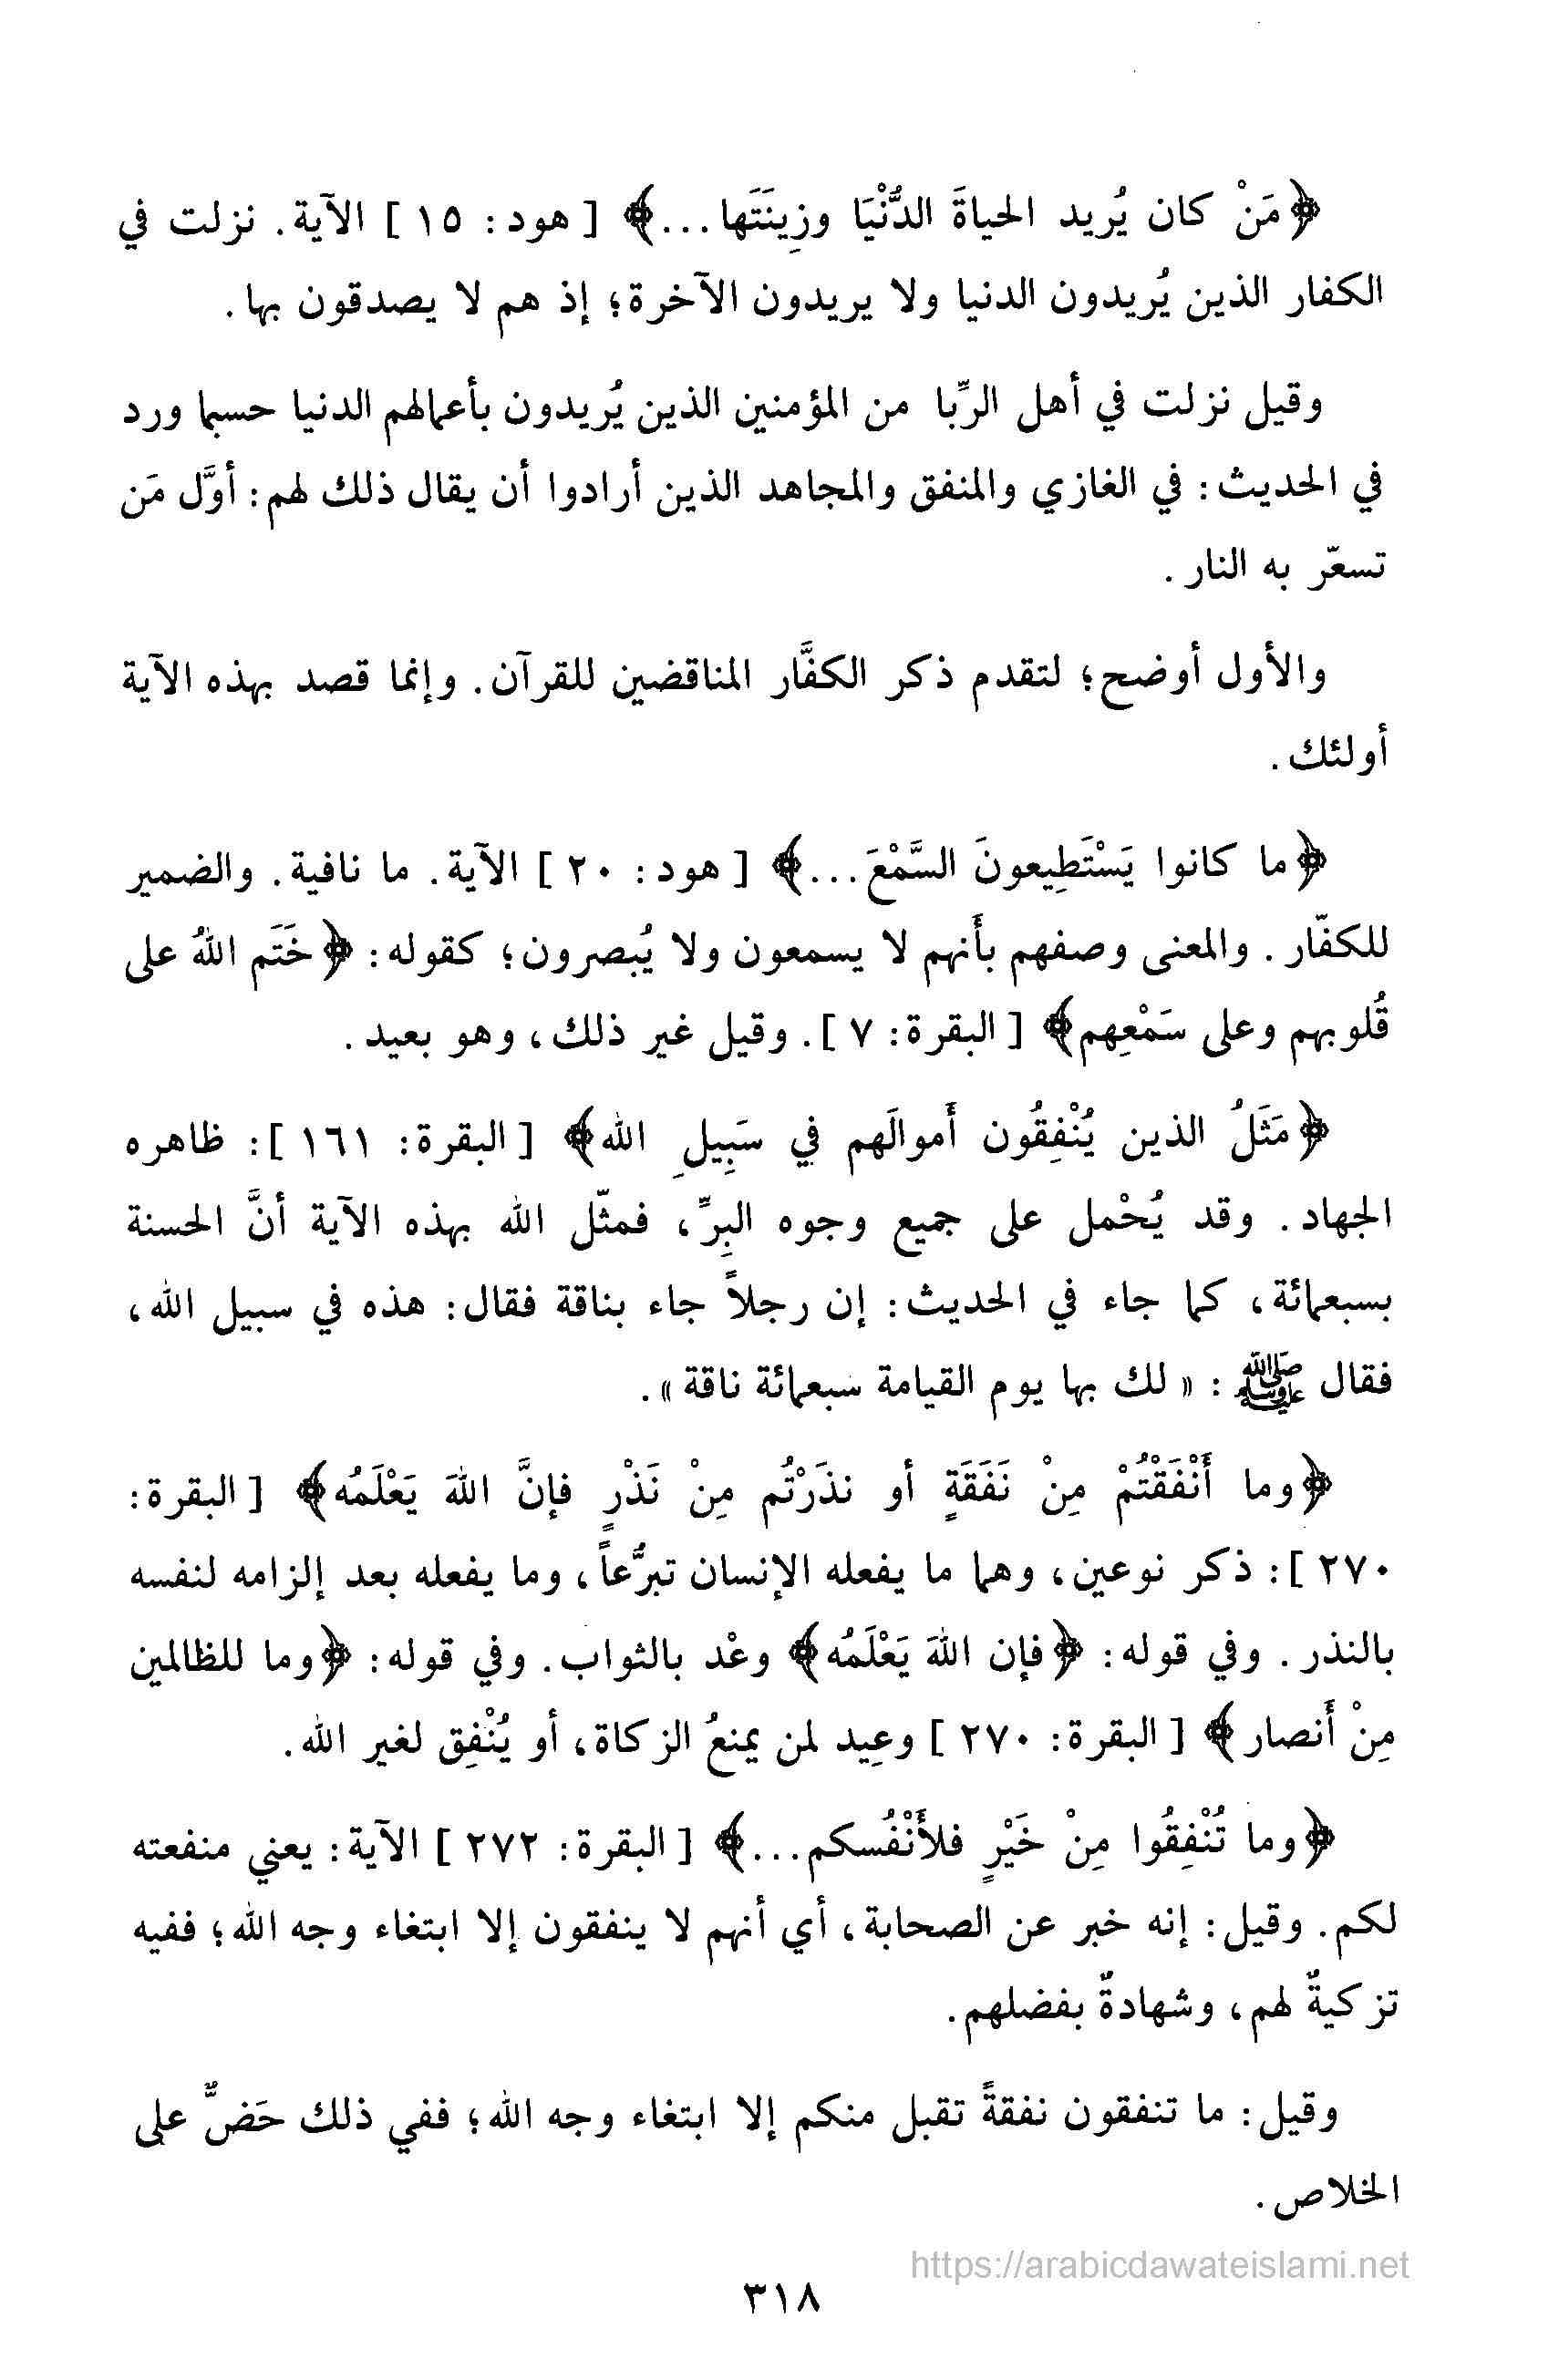 ﴿مَنْ كان يُريد الحياةَ الدُّنْيَا وزِينَتَها...﴾ [ هود: ١٥ ] الآية. نزلت في
الكفار الذين يُريدون الدنيا ولا يريدون الآخرة؛ إذ هم لا يصدقون بها.
وقيل نزلت في أهل الرِّبا من المؤمنين الذين يُريدون بأعمالهم الدنيا حسبما ورد
في الحديث: في الغازي والمنفق والمجاهد الذين أرادوا أن يقال ذلك لهم: أوَّل مَن
تسعّر به النار.
والأول أوضح؛ لتقدم ذكر الكفَّار المناقضين للقرآن. وإنما قصد بهذه الآية
أولئك.
﴿ما كانوا يَسْتَطِيعونَ السَّمْعَ...﴾ [ هود: ٢٠ ] الآية. ما نافية. والضمير
للكفّار. والمعنى وصفهم بأَنهم لا يسمعون ولا يُبصرون؛ كقوله: ﴿خَتَم اللهُ على
قُلوبهم وعلى سَمْعِهم﴾ [ البقرة: ٧ ]. وقيل غير ذلك، وهو بعيد.
﴿مَثَلُ الذين يُنْفِقُون أَموالَهم في سَبِيلِ الله﴾ [ البقرة: ١٦١ ]: ظاهره
الجهاد. وقد يُحْمل على جميع وجوه البِرِّ، فمثّل الله بهذه الآية أنَّ الحسنة
بسبعمائة، كما جاء في الحديث: إن رجلاً جاء بناقة فقال: هذه في سبيل الله،
فقال ﷺ: « لك بها يوم القيامة سبعمائة ناقة ».
﴿وما أَنْفَقْتُمْ مِنْ نَفَقَةٍ أو نذَرْتُم مِنْ نَذْرٍ فإنَّ اللهَ يَعْلَمُه﴾ [ البقرة:
٢٧٠ ]: ذكر نوعين، وهما ما يفعله الإنسان تبرُّعاً، وما يفعله بعد إلزامه لنفسه
بالنذر. وفي قوله: ﴿فإن اللهَ يَعْلَمُه﴾ وعْد بالثواب. وفي قوله: ﴿وما للظالمين
مِنْ أَنصار﴾ [ البقرة: ٢٧٠ ] وعِيد لمن يمنعُ الزكاة، أو يُنْفِق لغير الله.
﴿وما تُنْفِقُوا مِنْ خَيْرٍ فلأَنْفُسكم...﴾ [ البقرة: ٢٧٢ ] الآية: يعني منفعته
لكم. وقيل: إنه خبر عن الصحابة، أي أنهم لا ينفقون إلا ابتغاء وجه الله؛ ففيه
تزكيةٌ لهم، وشهادةٌ بفضلهم.
وقيل: ما تنفقون نفقةً تقبل منكم إلا ابتغاء وجه الله؛ ففي ذلك حَضٌّ على
الخلاص.
https://arabicdawateislami.net
٣١٨